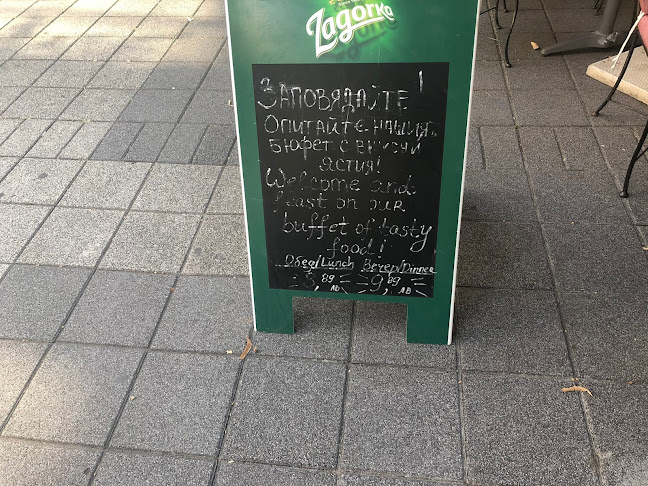 Zagorka
ЗАПОВЯДАЙТЕ!
ОПИТАЙТЕ НАШИЯТ
БЮФЕТ С ВКУСНИ
ЯСТИЯ!
Welcome and
feast on our
buffet of tasty
food!
Обед/Lunch Вечер/Dinner
89 = 9, 89 =
ЛВ ЛВ